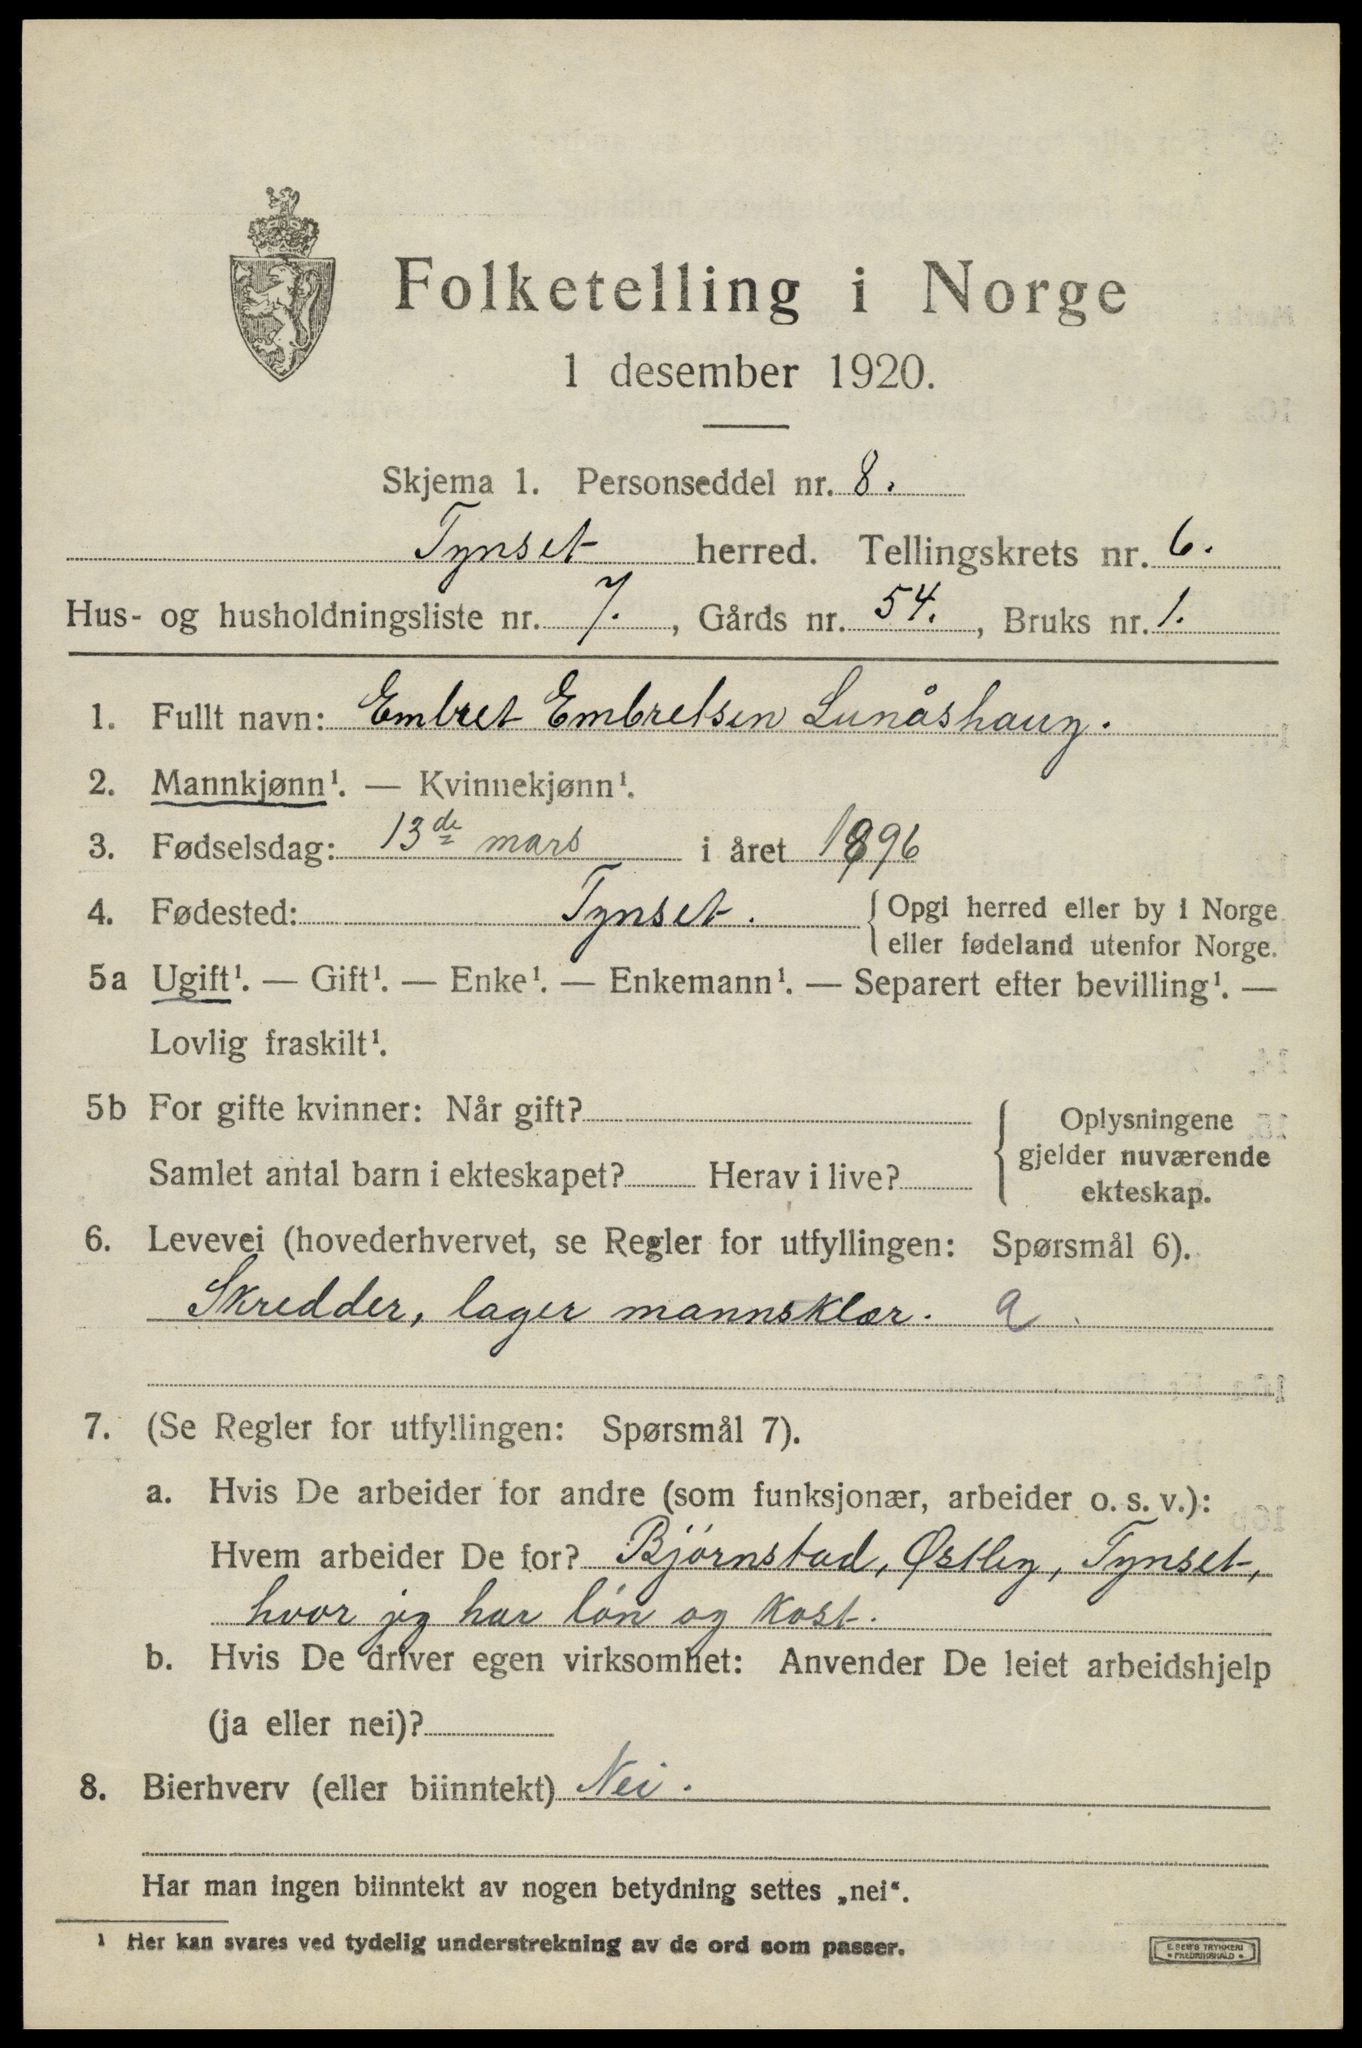 Folketelling i Norge
1 desember 1920.
Skjema 1. Personseddel nr. 8.
Tynset herred. Tellingskrets nr. 6.
Hus- og husholdningsliste nr. 7. , Gårds nr. 54. , Bruks nr. 1.
1. Fullt navn: Embret Embretsen Lunåshaug.
2. Mannkjønn¹. — Kvinnekjønn¹.
3. Fødselsdag: 13de mars i året 1896
4. Fødested: Tynset. { Opgi herred eller by i Norge
eller fødeland utenfor Norge.
5a Ugift¹. — Gift¹. — Enke¹. — Enkemann¹. — Separert efter bevilling¹. —
Lovlig fraskilt¹.
5b For gifte kvinner: Når gift?
Samlet antal barn i ekteskapet? Herav i live?
{ Oplysningene
gjelder nuværende
ekteskap.
6. Levevei (hovederhvervet, se Regler for utfyllingen: Spørsmål 6).
Skredder, lager mannsklær. a
7. (Se Regler for utfyllingen: Spørsmål 7).
a. Hvis De arbeider for andre (som funksjonær, arbeider o. s. v.):
Hvem arbeider De for? Bjørnstad, Østby, Tynset,
hvor jeg har løn og kost.
b. Hvis De driver egen virksomhet: Anvender De leiet arbeidshjelp
(ja eller nei)?
8. Bierhverv (eller biinntekt) Nei.
Har man ingen biinntekt av nogen betydning settes „nei“.
¹ Her kan svares ved tydelig understrekning av de ord som passer.
E. SEM'S TRYKKERI
• FREDRIKSHALD •